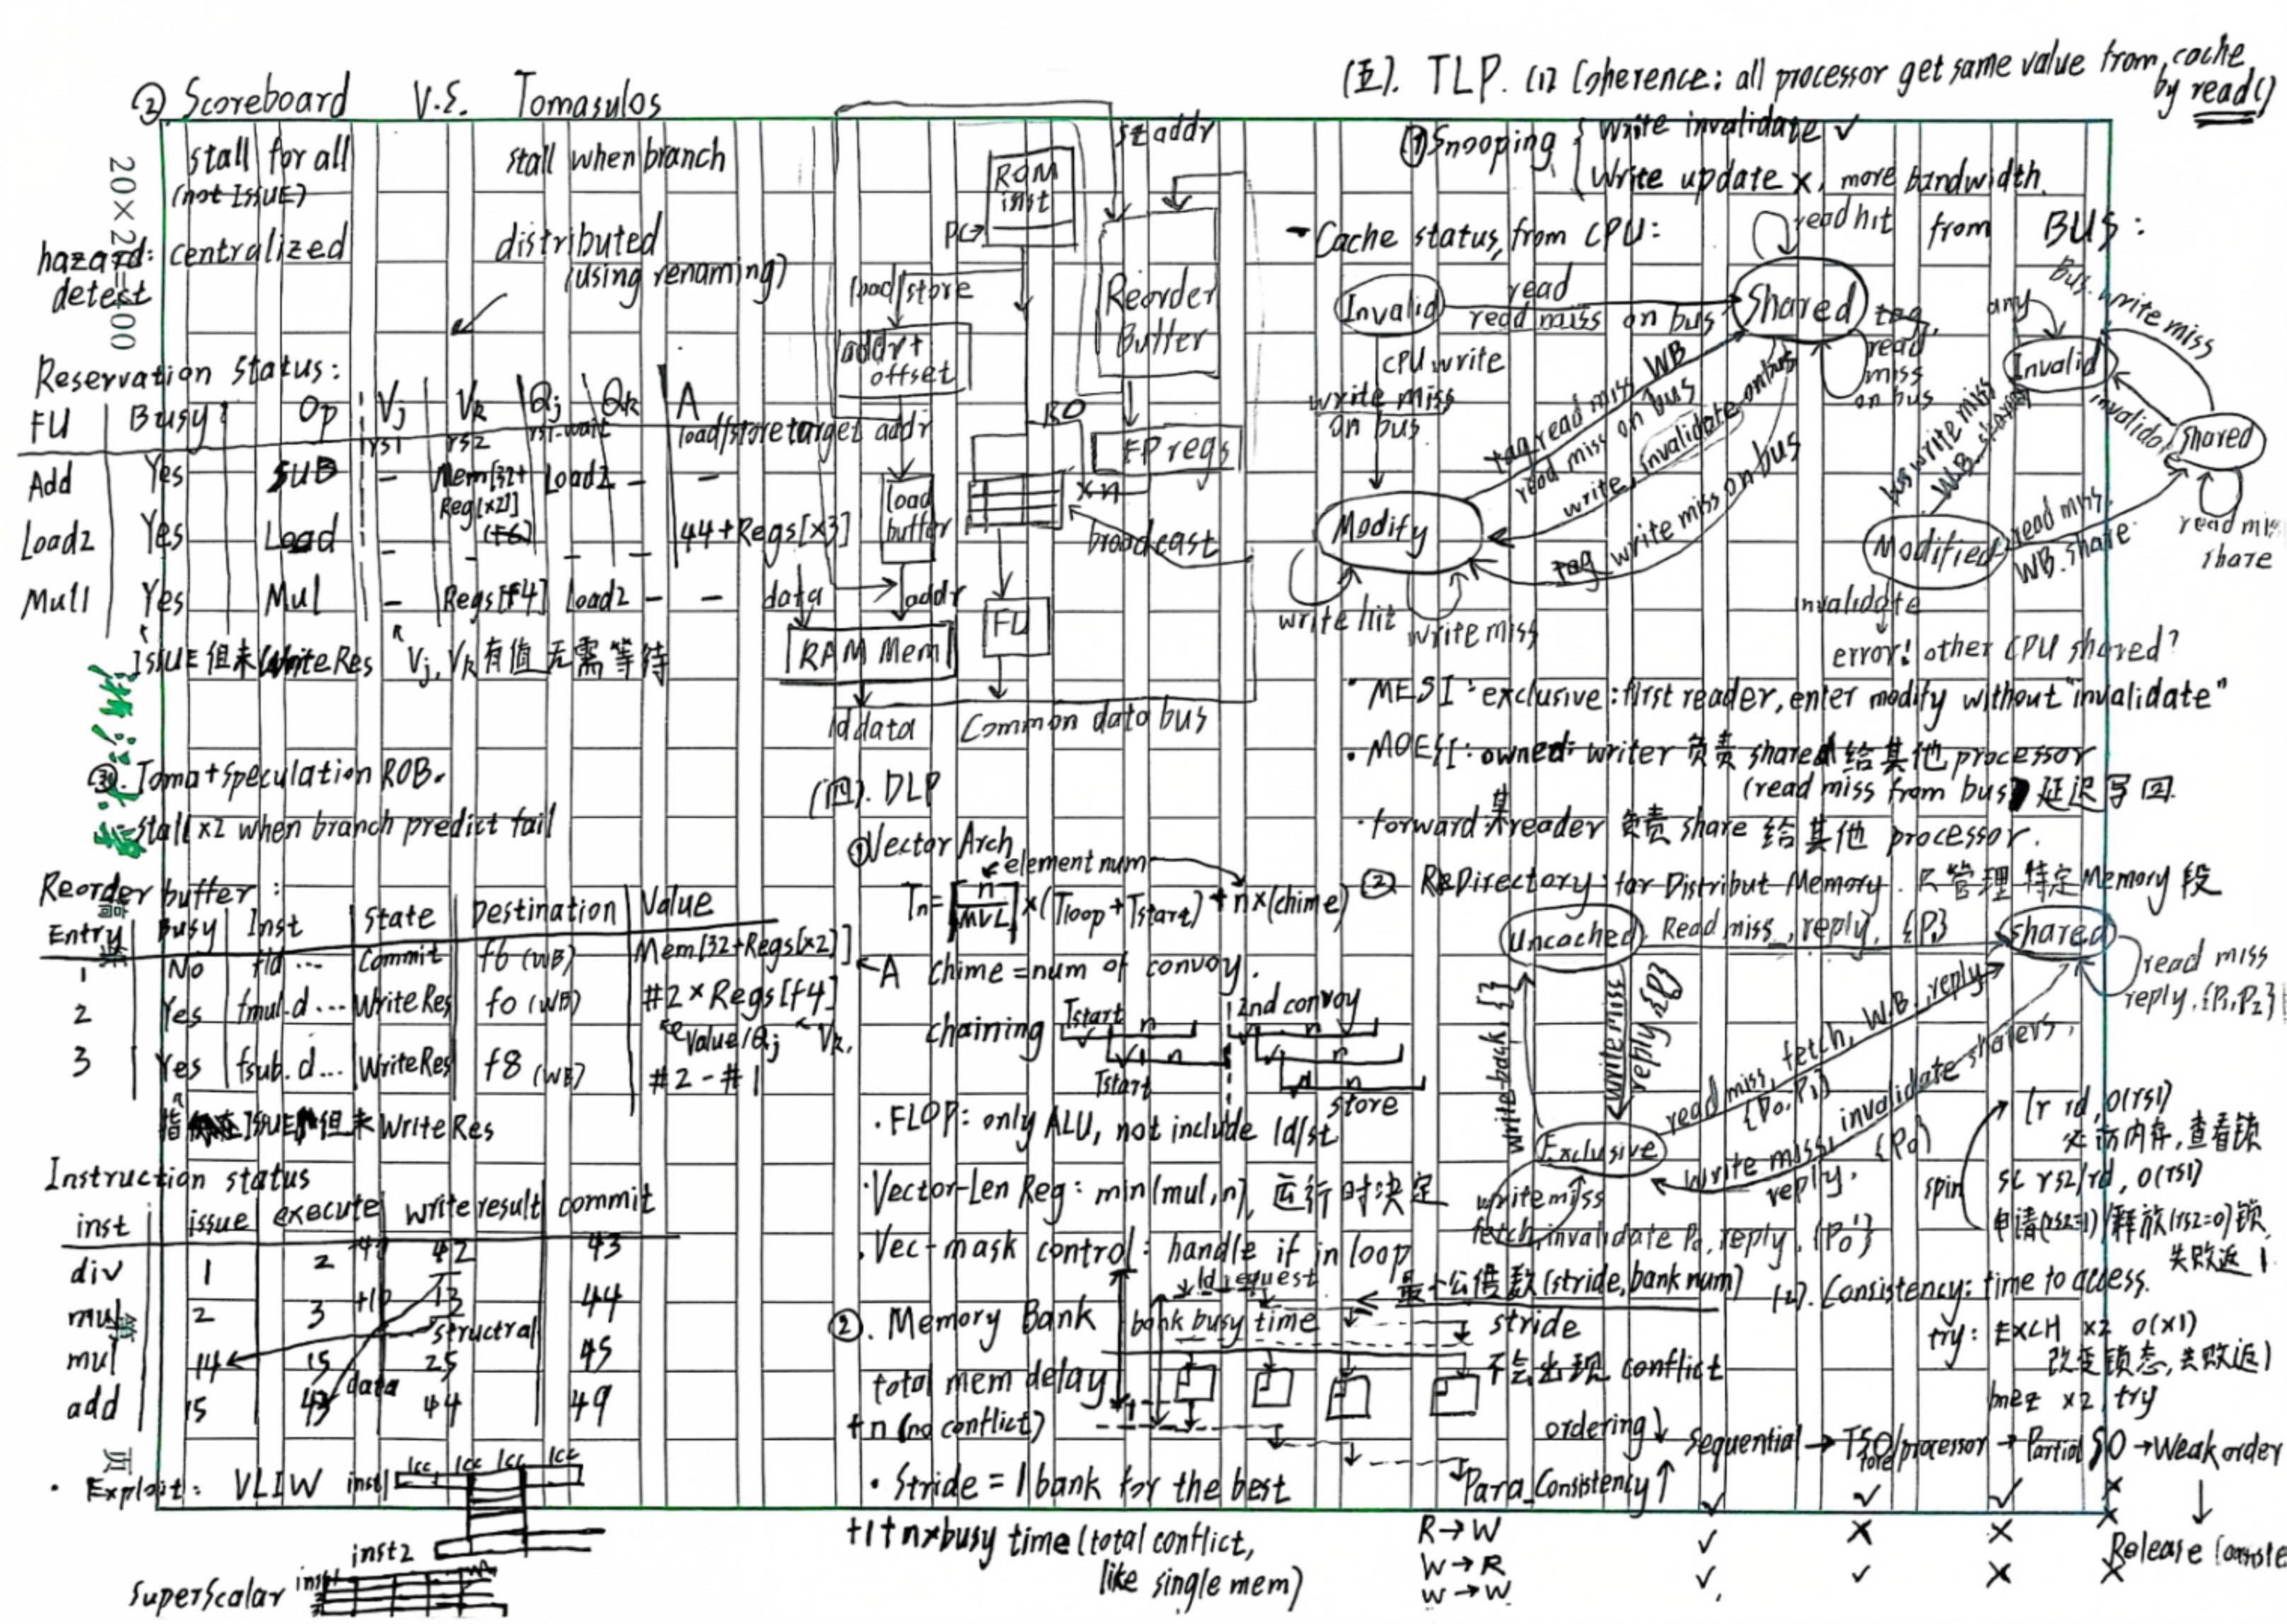 ②. Scoreboard V.S. Tomasulos
stall for all stall when branch
(not ISSUE)
hazard: centralized distributed
detect (using renaming)
20×2 =400
Reservation Status:
FU Busy Op Vj Vk Qj Qk A
rs1 rs2 rs1-wait load/store target addr
Add Yes SUB - Mem[32+ Load2 - -
Reg[x2]]
(f6)
Load2 Yes Load - - - - 44+Regs[x3]
Mul1 Yes Mul - Regs[f4] Load2 - -
ISSUE但未WriteRes Vj, Vk有值 无需等待
③. Toma+speculation ROB.
stall x2 when branch predict fail
Reorder buffer:
Entry Busy Inst State Destination Value
1 No fld ... Commit f6 (WB) Mem[32+Regs[x2]] ←A
2 Yes fmul.d ... WriteRes f0 (WB) #2 × Regs[f4]
Value/Qj Vk.
3 Yes fsub.d... WriteRes f8 (WB) #2 - #1
指 ISSUE 但未WriteRes
Instruction status
inst issue execute write result commit
div 1 2 +40 42 43
mul 2 3 +10 13 44
structral
mul 14 15 25 45
data
add 15 43 44 49
页
· Exploit: VLIW inst1 1cc 1cc 1cc 1cc
inst2
SuperScalar inst1
sz addr
RAM
inst
PC→
load/store
Reorder
Buffer
addr+
offset
RO
FP regs
load
buffer
×n
broadcast
data addr
FU
RAM Mem
ld data Common data bus
(四). DLP
①Vector Arch
element num
Tn=⌈n/MVL⌉×(Tloop+Tstart)+n×(chime)
chime=num of convoy.
chaining Tstart n 2nd convoy n
n n
Tstart n
store
·FLOP: only ALU, not include ld/st
·Vector-Len Reg: min(mul,n), 运行时决定
·Vec-mask control: handle if in loop
ld request
最小公倍数(stride,bank num)
②. Memory Bank bank busy time stride
不会出现 conflict
total mem delay
+1
+n (no conflict)
· Stride = 1 bank for the best
+1+n×busy time(total conflict,
like single mem)
(五). TLP. (1) Coherence: all processor get same value from cache
by read()
①Snooping { Write invalidate ✓
Write update ×, more bandwidth.
- Cache status, from CPU: from BUS:
read hit
Invalid read Shared
read miss on bus
tag,
read
miss
on bus
CPU write
write miss
on bus
tag read miss WB
read miss on bus
write, invalidate on bus
tag write miss on bus
Modify
write hit write miss
any
Bus write miss
Invalid
invalidate
Shared
bus write miss
Modified
read miss.
WB. share
share
invalidate
error! other CPU shared?
· MESI: exclusive: first reader, enter modify without "invalidate"
· MOESI: owned: writer 负责 shared 给其他 processor
(read miss from bus) 延迟写回.
·forward: 某reader 负责 share 给其他 processor.
② Directory: for Distribut Memory. 只管理特定Memory段
Uncached Read miss, reply, {P1} Shared
read miss
reply, {P1,P2}
write-back, {}
write miss
reply {P}
read miss, fetch, W.B., reply
{P0,P1}
Write miss, invalidate sharers,
reply. {P0}
Exclusive
write miss
fetch, invalidate P0, reply, {P0'}
lr rd, 0(rs1)
访内存, 查看锁
spin
sc rs2/rd, 0(rs1)
申请(rs2=1)/释放(rs2=0)锁,
失败返1
(2). Consistency: time to access.
try: EXCH x2 0(x1)
改变锁态, 失败返1
bnez x2, try
ordering↓ Sequential → TSO/processor → Partial SO → Weak order
store
Para_Consistency↑ ✓ ✓ ✓ ×
R→W ✓ × × ×
W→R
W→W ✓ ✓ × ×